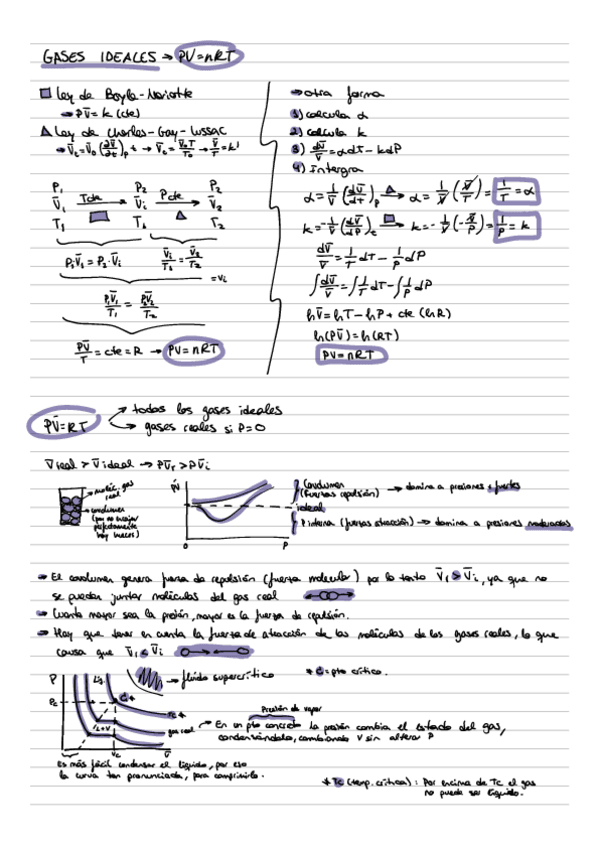 GASES IDEALES → PV=nRT
Ley de Boyle-Mariotte
→ PV̄ = k (cte)
Ley de Charles-Gay-Lussac
→ V̄t = V̄0 (∂V̄/∂t)p t → V̄t = V̄0T/T0 → V̄/T = k'
P1 P2 P2
V̄1 Tcte V̄i Pcte V̄2
T1 T1 T2
P1V̄1 = P2·V̄i V̄i/T1 = V̄2/T2
= Vi
P1V̄1/T1 = P2V̄2/T2
PV̄/T = cte = R → PV=nRT
→ otra forma
1) calcula α
2) calcula k
3) dV̄/V̄ = αdT - kdP
4) Integra
α = 1/V̄ (dV̄/dt)p → α = 1/V̄ (V̄/T) = 1/T = α
k = -1/V̄ (dV̄/dP)t k = -1/V̄ (-V̄/P) = 1/P = k
dV̄/V̄ = 1/T dT - 1/P dP
∫dV̄/V̄ = ∫1/T dT - ∫1/P dP
ln V̄ = ln T - ln P + cte (ln R)
ln(PV̄) = ln(RT)
PV=nRT
PV̄=RT
→ todos los gases ideales
→ gases reales si P=0
V̄real > V̄ideal → PV̄r > PV̄i
molec. gas
real
covolumen
(por no encajar
perfectamente
hay huecos)
P
0
Covolumen
(fuerzas repulsión) → domina a presiones + fuertes
ideal
P interna (fuerzas atracción) → domina a presiones moderadas
→ El covolumen genera fuerza de repulsión (fuerza molecular) por lo tanto V̄r > V̄i, ya que no
se pueden juntar moléculas del gas real
→ Cuanto mayor sea la presión, mayor es la fuerza de repulsión.
→ Hay que tener en cuenta la fuerza de atracción de las moléculas de los gases reales, lo que
causa que V̄r < V̄i
P
Lq.
→ fluido supercrítico
* C = pto crítico.
Pc
C *
Tc *
gas real
L+V
Vc
V̄
Presión de vapor
En un pto concreto la presión cambia el estado del gas,
condensándolo, cambiando V sin alterar P
Es más fácil condensar el líquido, por eso
la curva tan pronunciada, para comprimirlo.
* Tc (temp. crítica): Por encima de Tc el gas
no puede ser líquido.